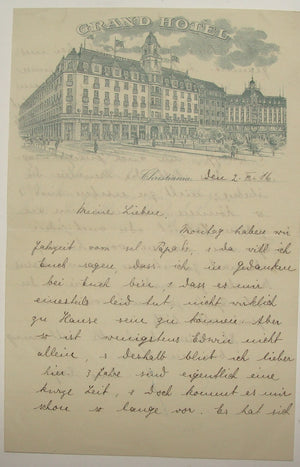 GRAND HOTEL
Christiania, den 2. II. 16.
Meine Lieben,
Montag haben wir
Jahrzeit vom sel. Papa, & da will ich
Euch sagen, dass ich in Gedanken
bei Euch bin, & dass es mir
einesteils leid tut, nicht wirklich
zu Hause sein zu können. Aber
so ist wenigstens Edwin nicht
allein, & deshalb bleibt ich lieber
hier. 3 Jahre sind eigentlich eine
kurze Zeit, & doch kommt es mir
schon so lange vor. Es hat sich